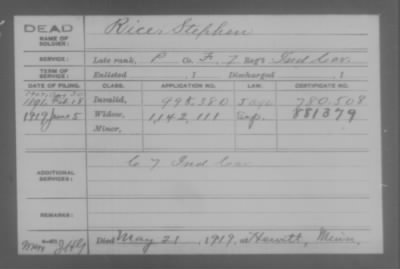 DEAD
NAME OF SOLDIER:
Rice, Stephen
SERVICE:
Late rank, P Co. F, 7 Reg't Ind Cav.
TERM OF SERVICE:
Enlisted , 1 Discharged , 1
DATE OF FILING. CLASS. APPLICATION NO. LAW. CERTIFICATE NO.
1891 Feb 18 Invalid, 998,380 780,508
1919 June 5 Widow, 1,142,111 881379
Minor,
ADDITIONAL SERVICES:
C 7 Ind Cav
REMARKS:
Died May 21, 1919, at Hewitt, Minn.